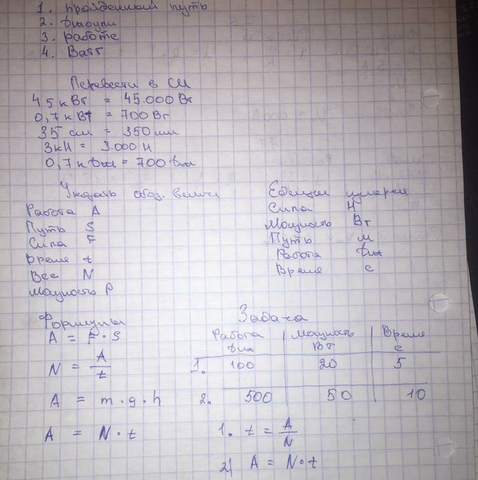 1. пройденный путь
2. Джоули
3. работе
4. Ватт
Перевести в СИ
45 кВт = 45.000 Вт
0,7 кВт = 700 Вт
35 см = 350 мм
3кН = 3.000 Н
0,7 кДж = 700 Дж
Указать обоз. велич
Работа A
Путь S
Сила F
Время t
Вес N
Мощность P
Единицы измерен
Сила Н
Мощность Вт
Путь м
Работа Дж
Время с
Формулы
A = F · S
N = A / t
A = m · g · h
A = N · t
Задача
Работа Дж | Мощность ВТ | Время с
1. 100 | 20 | 5
2. 500 | 50 | 10
1. t = A / N
2) A = N · t